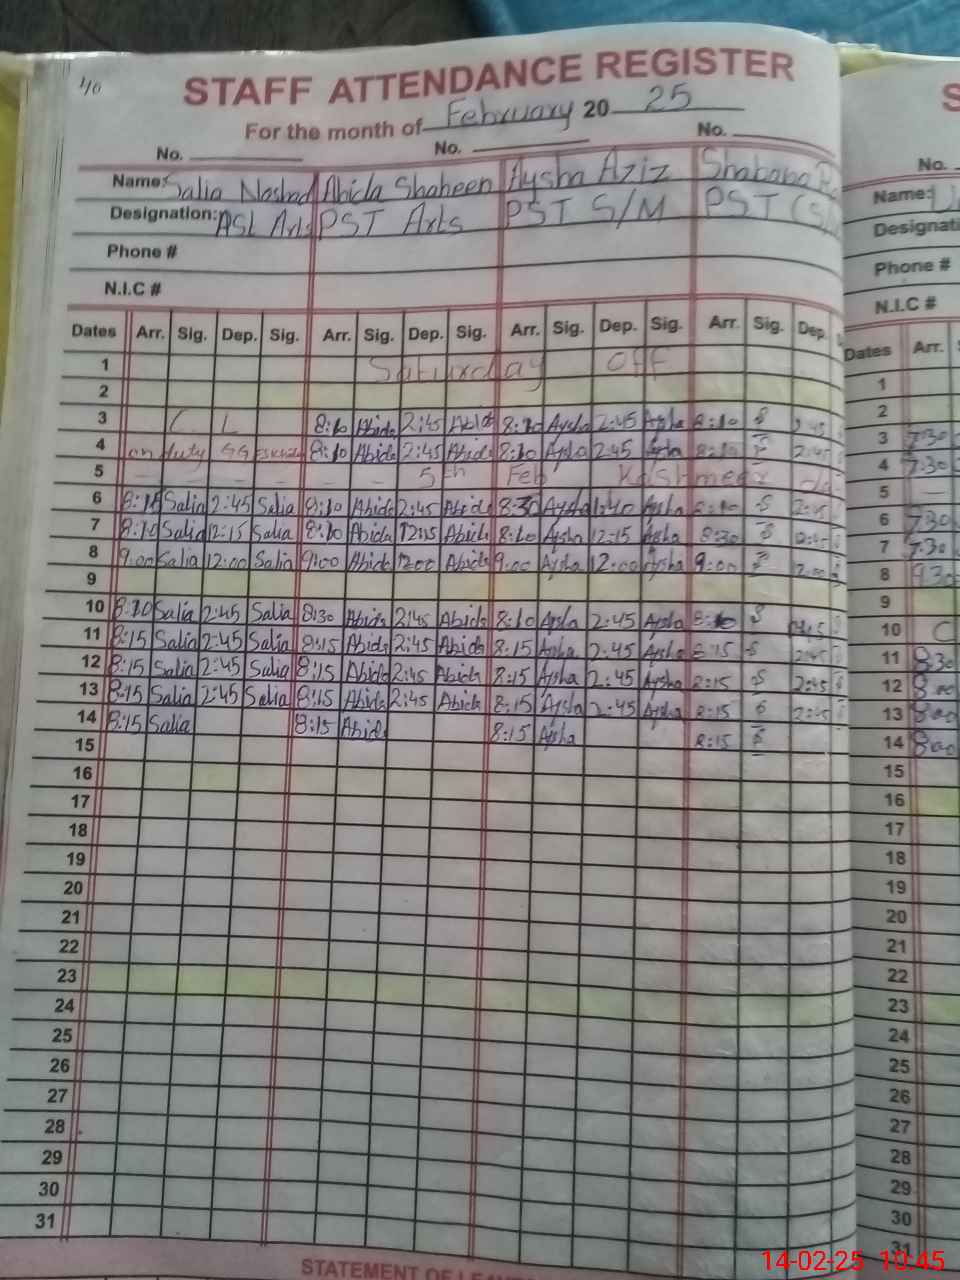 1/10
STAFF ATTENDANCE REGISTER
For the month of February 20 25
No. No. No.
Name: Salia Noshad Abida Shaheen Aysha Aziz Shabana
Designation: PST Arts PST Arts PST S/M PST (S/
Phone #
N.I.C #
Dates Arr. Sig. Dep. Sig. Arr. Sig. Dep. Sig. Arr. Sig. Dep. Sig. Arr. Sig. Dep.
1 Saturday Off
2
3 C L 8:10 Abida 2:45 Abida 8:10 Aysha 2:45 Aysha 8:10 S 2:45
4 on duty 8:10 Abida 2:45 Abida 8:10 Aysha 2:45 Aysha 8:10 S 2:45
5 - - - - - - 5th Feb Kashmeer
6 8:15 Salia 2:45 Salia 8:10 Abida 2:45 Abida 8:30 Aysha 1:40 Aysha S 2:45
7 8:10 Salia 12:15 Salia 8:10 Abida 12:15 Abida 8:10 Aysha 12:15 Aysha 8:30 S
8 9:00 Salia 12:00 Salia 9:00 Abida 12:00 Abida 9:00 Aysha 12:00 Aysha 9:00 S 12:00
9
10 8:10 Salia 2:45 Salia 8:30 Abida 2:45 Abida 8:10 Aysha 2:45 Aysha S
11 8:15 Salia 2:45 Salia 8:15 Abida 2:45 Abida 8:15 Aysha 2:45 Aysha 8:15 S 2:45
12 8:15 Salia 2:45 Salia 8:15 Abida 2:45 Abida 8:15 Aysha 2:45 Aysha 8:15 S 2:45
13 8:15 Salia 2:45 Salia 8:15 Abida 2:45 Abida 8:15 Aysha 2:45 Aysha 8:15 S 2:45
14 8:15 Salia 8:15 Abida 8:15 Aysha 8:15 S
15
16
17
18
19
20
21
22
23
24
25
26
27
28
29
30
31
STATEMENT OF
S
No.
Name:
Phone #
N.I.C #
Dates Arr.
1
2
3 7:30
4 7:30
5 -
6 7:30
7 7:30
8 9:30
9
10 C
11 8:30
12 8:00
13 8:00
14 8:00
15
16
17
18
19
20
21
22
23
24
25
26
27
28
29
30
31
14-02-25 10:45